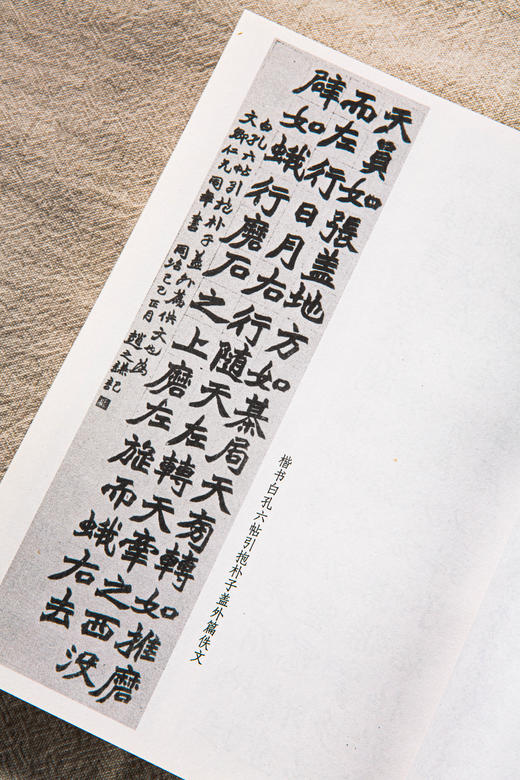 天員如張盖地方如棊局天旁轉如推磨
而左行日月右行隨天左轉天牽之西没
辟如蛾行磨石之上磨左旋而蛾右去
白孔六帖引抱朴子蓋外篇佚文也為
文卿仁兄同年書 同治己巳正月 趙之謙記
楷书白孔六帖引抱朴子盖外篇佚文